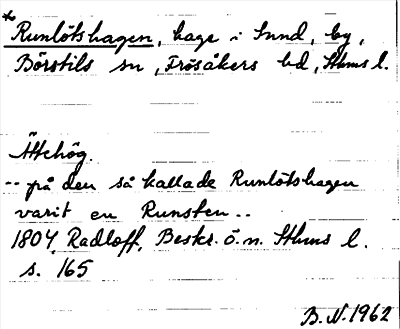 * Runlötshagen, hage i Sund, by,
Börstils sn, Frösåkers hd, Sthms l.
Ättehög.
-- på den så kallade Runlötshagen
varit en Runsten --
1804, Radloff, Beskr. ö. n. Sthms l.
s. 165
B.N. 1962